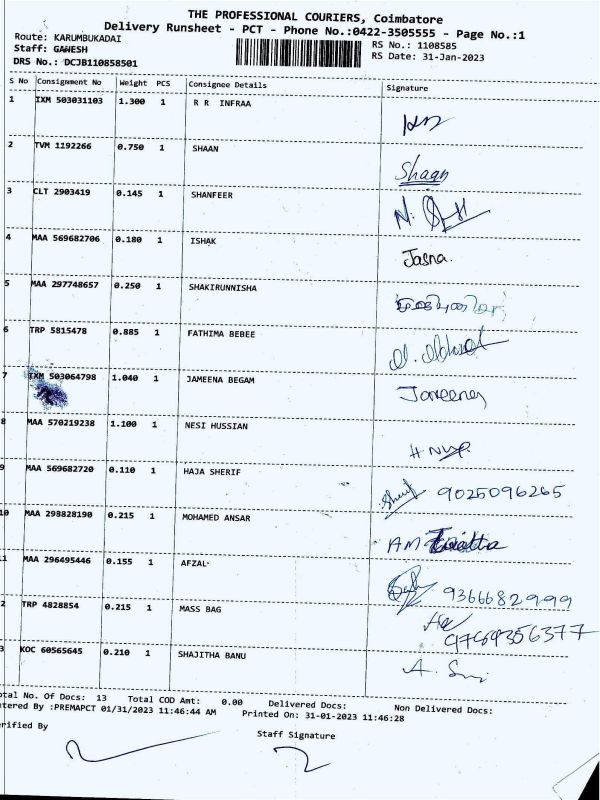 THE PROFESSIONAL COURIERS, Coimbatore
Delivery Runsheet - PCT - Phone No.:0422-3505555 - Page No.:1
Route: KARUMBUKADAI
RS No.: 1108585
Staff: GANESH
RS Date: 31-Jan-2023
DRS No.: DCJB110858501
S No Consignment No Weight PCS Consignee Details Signature
1 IXM 503031103 1.300 1 R R INFRAA
2 TVM 1192266 0.750 1 SHAAN Shaan
3 CLT 2903419 0.145 1 SHANFEER
4 MAA 569682706 0.180 1 ISHAK Jasna.
5 MAA 297748657 0.250 1 SHAKIRUNNISHA
6 TRP 5815478 0.885 1 FATHIMA BEBEE
7 IXM 503064798 1.040 1 JAMEENA BEGAM Jameena
8 MAA 570219238 1.100 1 NESI HUSSIAN
9 MAA 569682720 0.110 1 HAJA SHERIF 9025096265
10 MAA 298828190 0.215 1 MOHAMED ANSAR
1 MAA 296495446 0.155 1 AFZAL 9366682999
2 TRP 4828854 0.215 1 MASS BAG
3 KOC 60565645 0.210 1 SHAJITHA BANU
otal No. Of Docs: 13 Total COD Amt: 0.00 Delivered Docs: Non Delivered Docs:
ntered By :PREMAPCT 01/31/2023 11:46:44 AM Printed On: 31-01-2023 11:46:28
erified By
Staff Signature